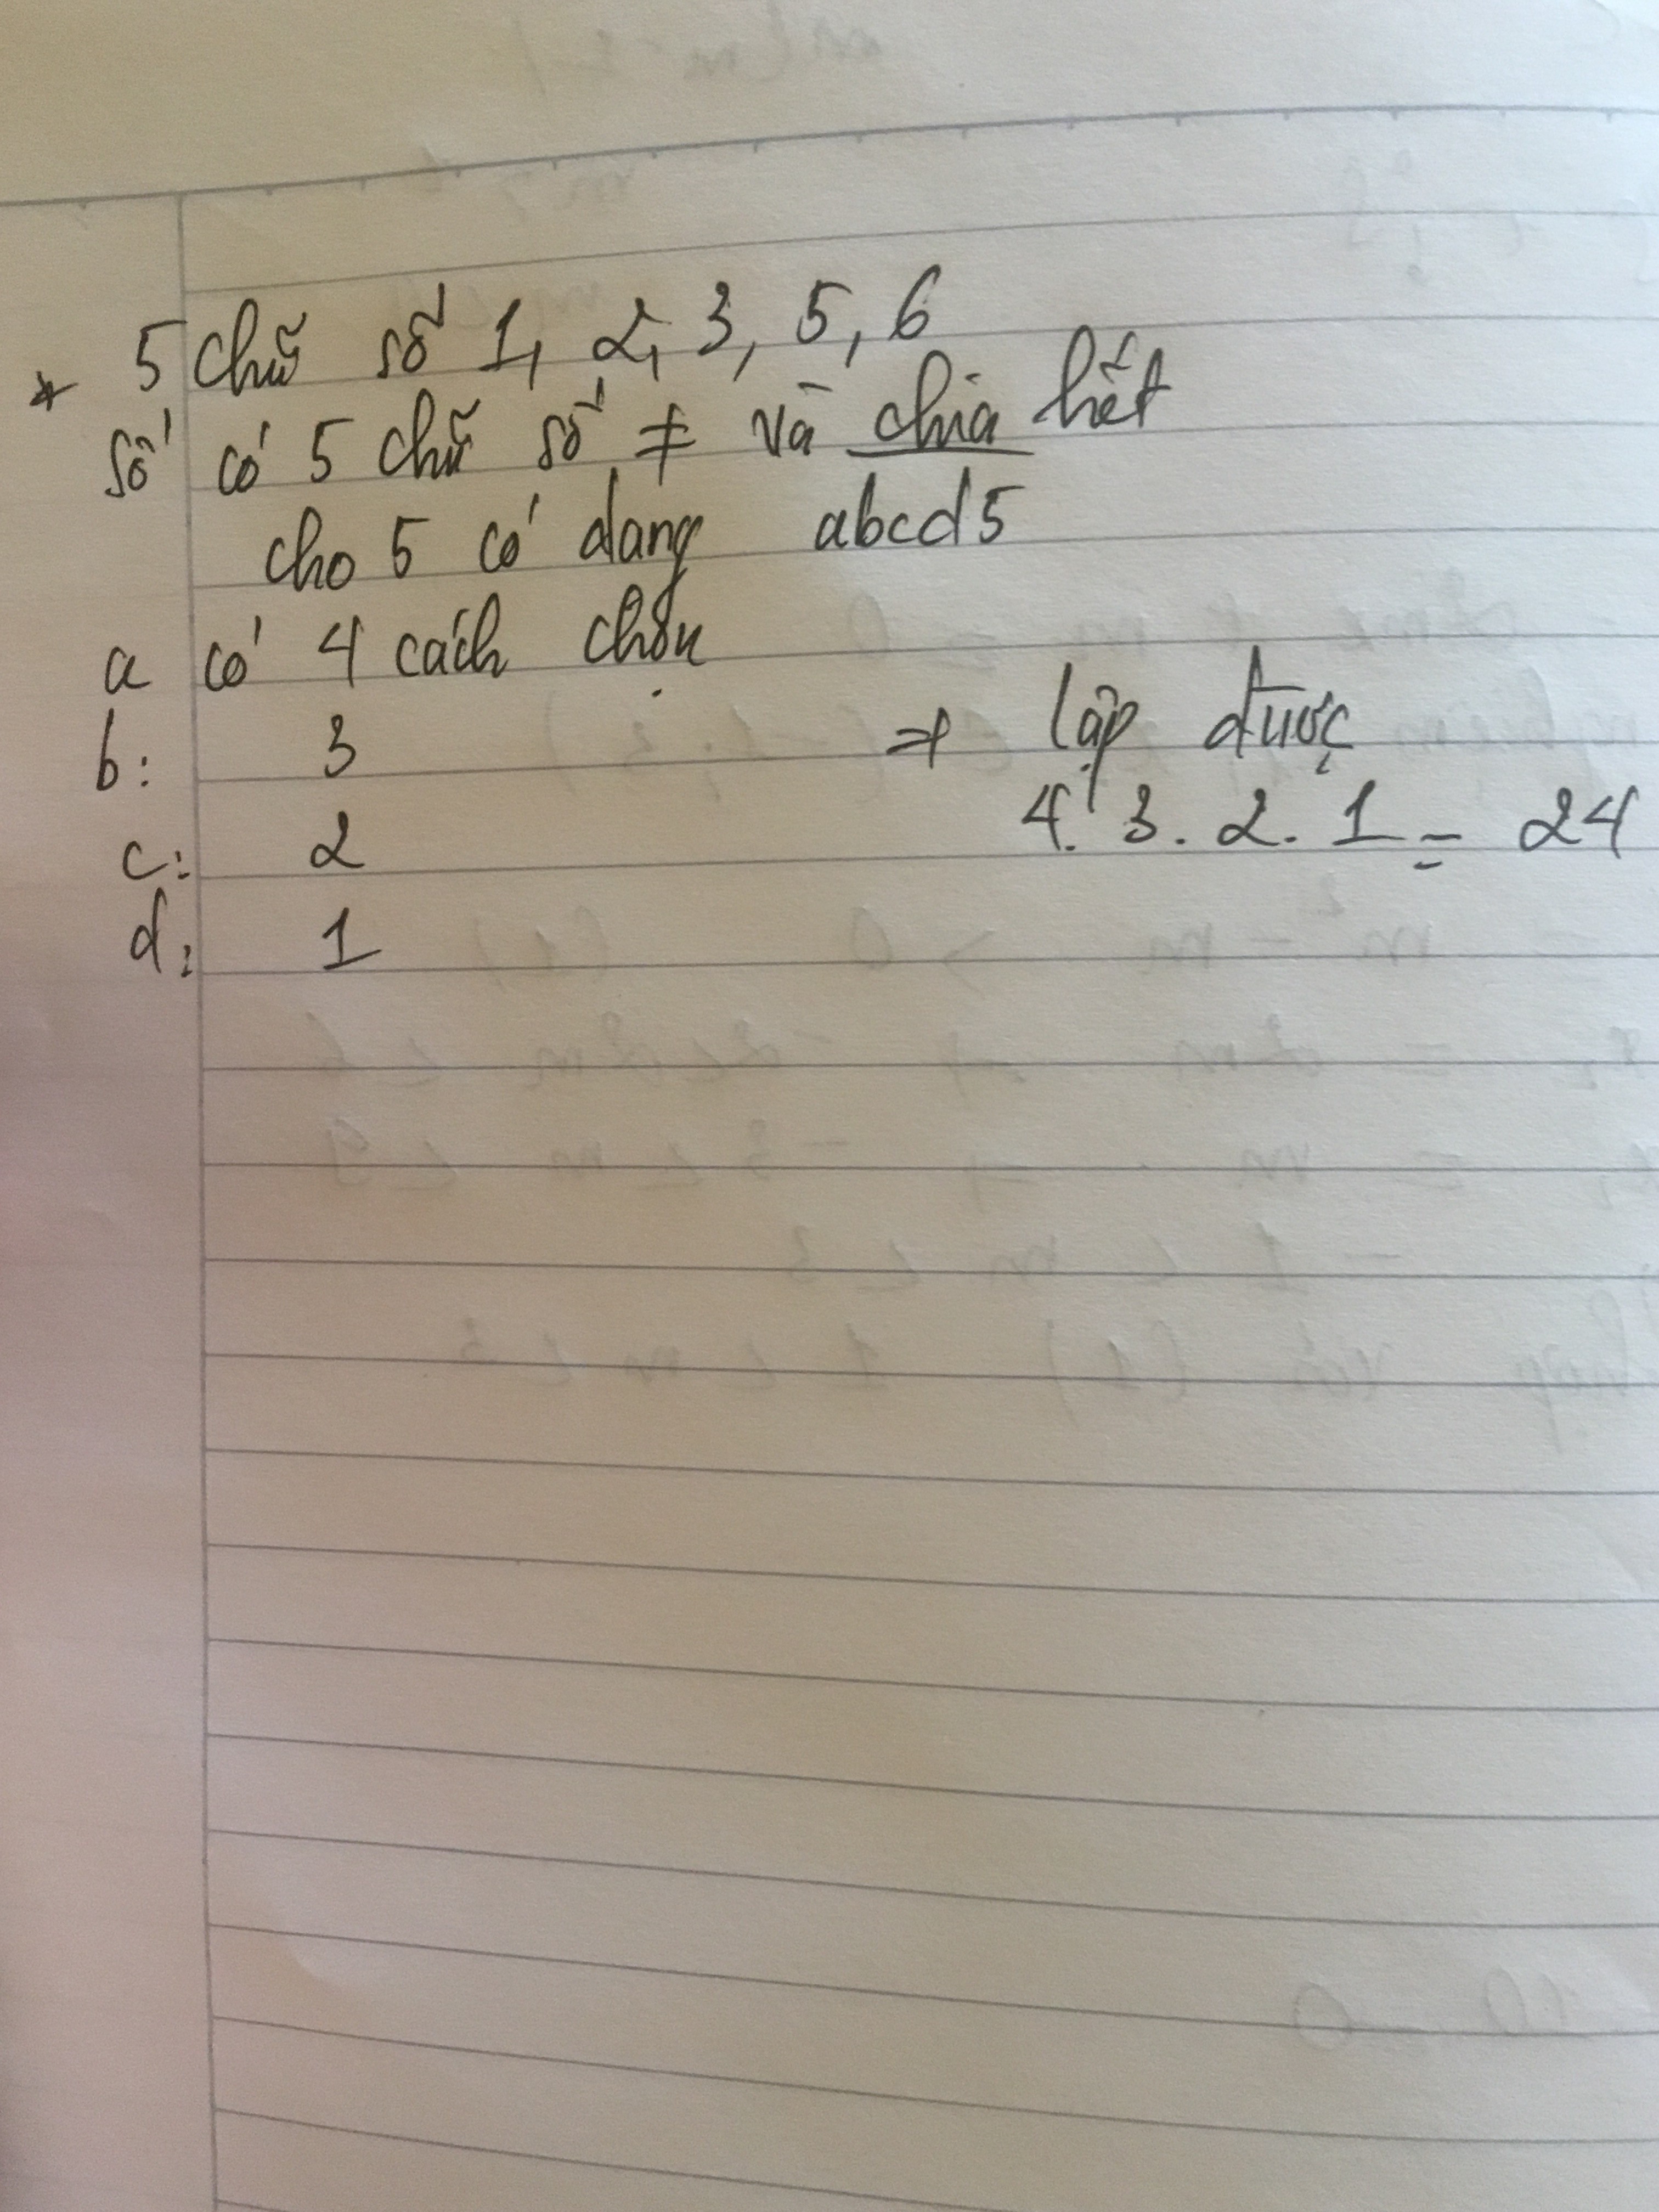 * 5 chữ số 1, 2, 3, 5, 6
số có 5 chữ số ≠ và chia hết
cho 5 có dạng abcd5
a có 4 cách chọn
b: 3
⇒ lập được
4. 3. 2. 1 = 24
c: 2
d: 1